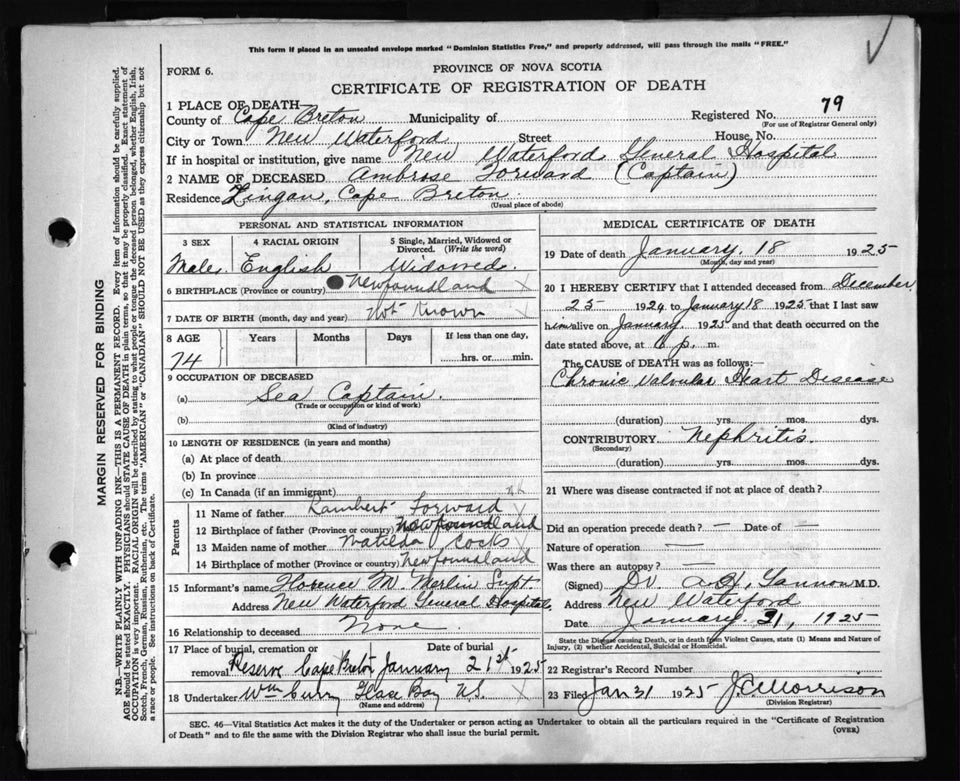 This form if placed in an unsealed envelope marked "Dominion Statistics Free," and properly addressed, will pass through the mails "FREE."
FORM 6.
PROVINCE OF NOVA SCOTIA
CERTIFICATE OF REGISTRATION OF DEATH
1 PLACE OF DEATH—
County of Cape Breton Municipality of Registered No. 79
(For use of Registrar General only)
City or Town New Waterford Street House, No.
If in hospital or institution, give name New Waterford General Hospital
2 NAME OF DECEASED Ambrose Forward (Captain)
Residence Lingan, Cape Breton
(Usual place of abode)
MARGIN RESERVED FOR BINDING
N.B.—WRITE PLAINLY WITH UNFADING INK—THIS IS A PERMANENT RECORD. Every item of information should be carefully supplied.
AGE should be stated EXACTLY. PHYSICIANS should STATE CAUSE OF DEATH in plain terms, so that it may be properly classified. Exact statement of
OCCUPATION is very important. RACIAL ORIGIN will be described by stating to what people or tongue the deceased person belonged, whether English, Irish,
Scotch, French, German, Russian, Ruthenian, etc. The terms "AMERICAN" or "CANADIAN" SHOULD NOT BE USED as they express citizenship but not
a race or people. See instructions on back of Certificate.
PERSONAL AND STATISTICAL INFORMATION
3 SEX 4 RACIAL ORIGIN 5 Single, Married, Widowed or
Divorced. (Write the word)
Male. English Widowed.
6 BIRTHPLACE (Province or country) Newfoundland
7 DATE OF BIRTH (month, day and year) Not Known
8 AGE Years Months Days If less than one day,
74 hrs. or min.
9 OCCUPATION OF DECEASED
(a) Sea Captain.
(Trade or occupation or kind of work)
(b)
(Kind of industry)
10 LENGTH OF RESIDENCE (in years and months)
(a) At place of death
(b) In province
(c) In Canada (if an immigrant)
Parents
11 Name of father Lambert Forward
12 Birthplace of father (Province or country) Newfoundland
13 Maiden name of mother Matilda Cocks
14 Birthplace of mother (Province or country) Newfoundland
15 Informant's name Florence M. Merlin Supt
Address New Waterford General Hospital
16 Relationship to deceased None.
17 Place of burial, cremation or Date of burial
removal Reserve Cape Breton January 21st 1925
18 Undertaker Wm Curry Glace Bay N.S.
(Name and address)
MEDICAL CERTIFICATE OF DEATH
19 Date of death January, 18 1925
(Month, day and year)
20 I HEREBY CERTIFY that I attended deceased from December,
25 1924 to January 18 1925 that I last saw
him alive on January 1925 and that death occurred on
date stated above, at 6 p. m.
The CAUSE of DEATH was as follows:—
Chronic Valvular Heart Disease
(duration) yrs. mos. dys.
CONTRIBUTORY Nephritis.
(Secondary)
(duration) yrs. mos. dys.
21 Where was disease contracted if not at place of death?
Did an operation precede death? — Date of —
Nature of operation —
Was there an autopsy? —
(Signed) Dr. M.D.
Address New Waterford
Date January 21, 1925
State the Disease causing Death, or in death from Violent Causes, state (1) Means and Nature of
Injury, (2) whether Accidental, Suicidal or Homicidal.
22 Registrar's Record Number
23 Filed Jan 21 1925 J.C. Morrison
(Division Registrar)
SEC. 46—Vital Statistics Act makes it the duty of the Undertaker or person acting as Undertaker to obtain all the particulars required in the "Certificate of Registration
of Death" and to file the same with the Division Registrar who shall issue the burial permit.
(OVER)